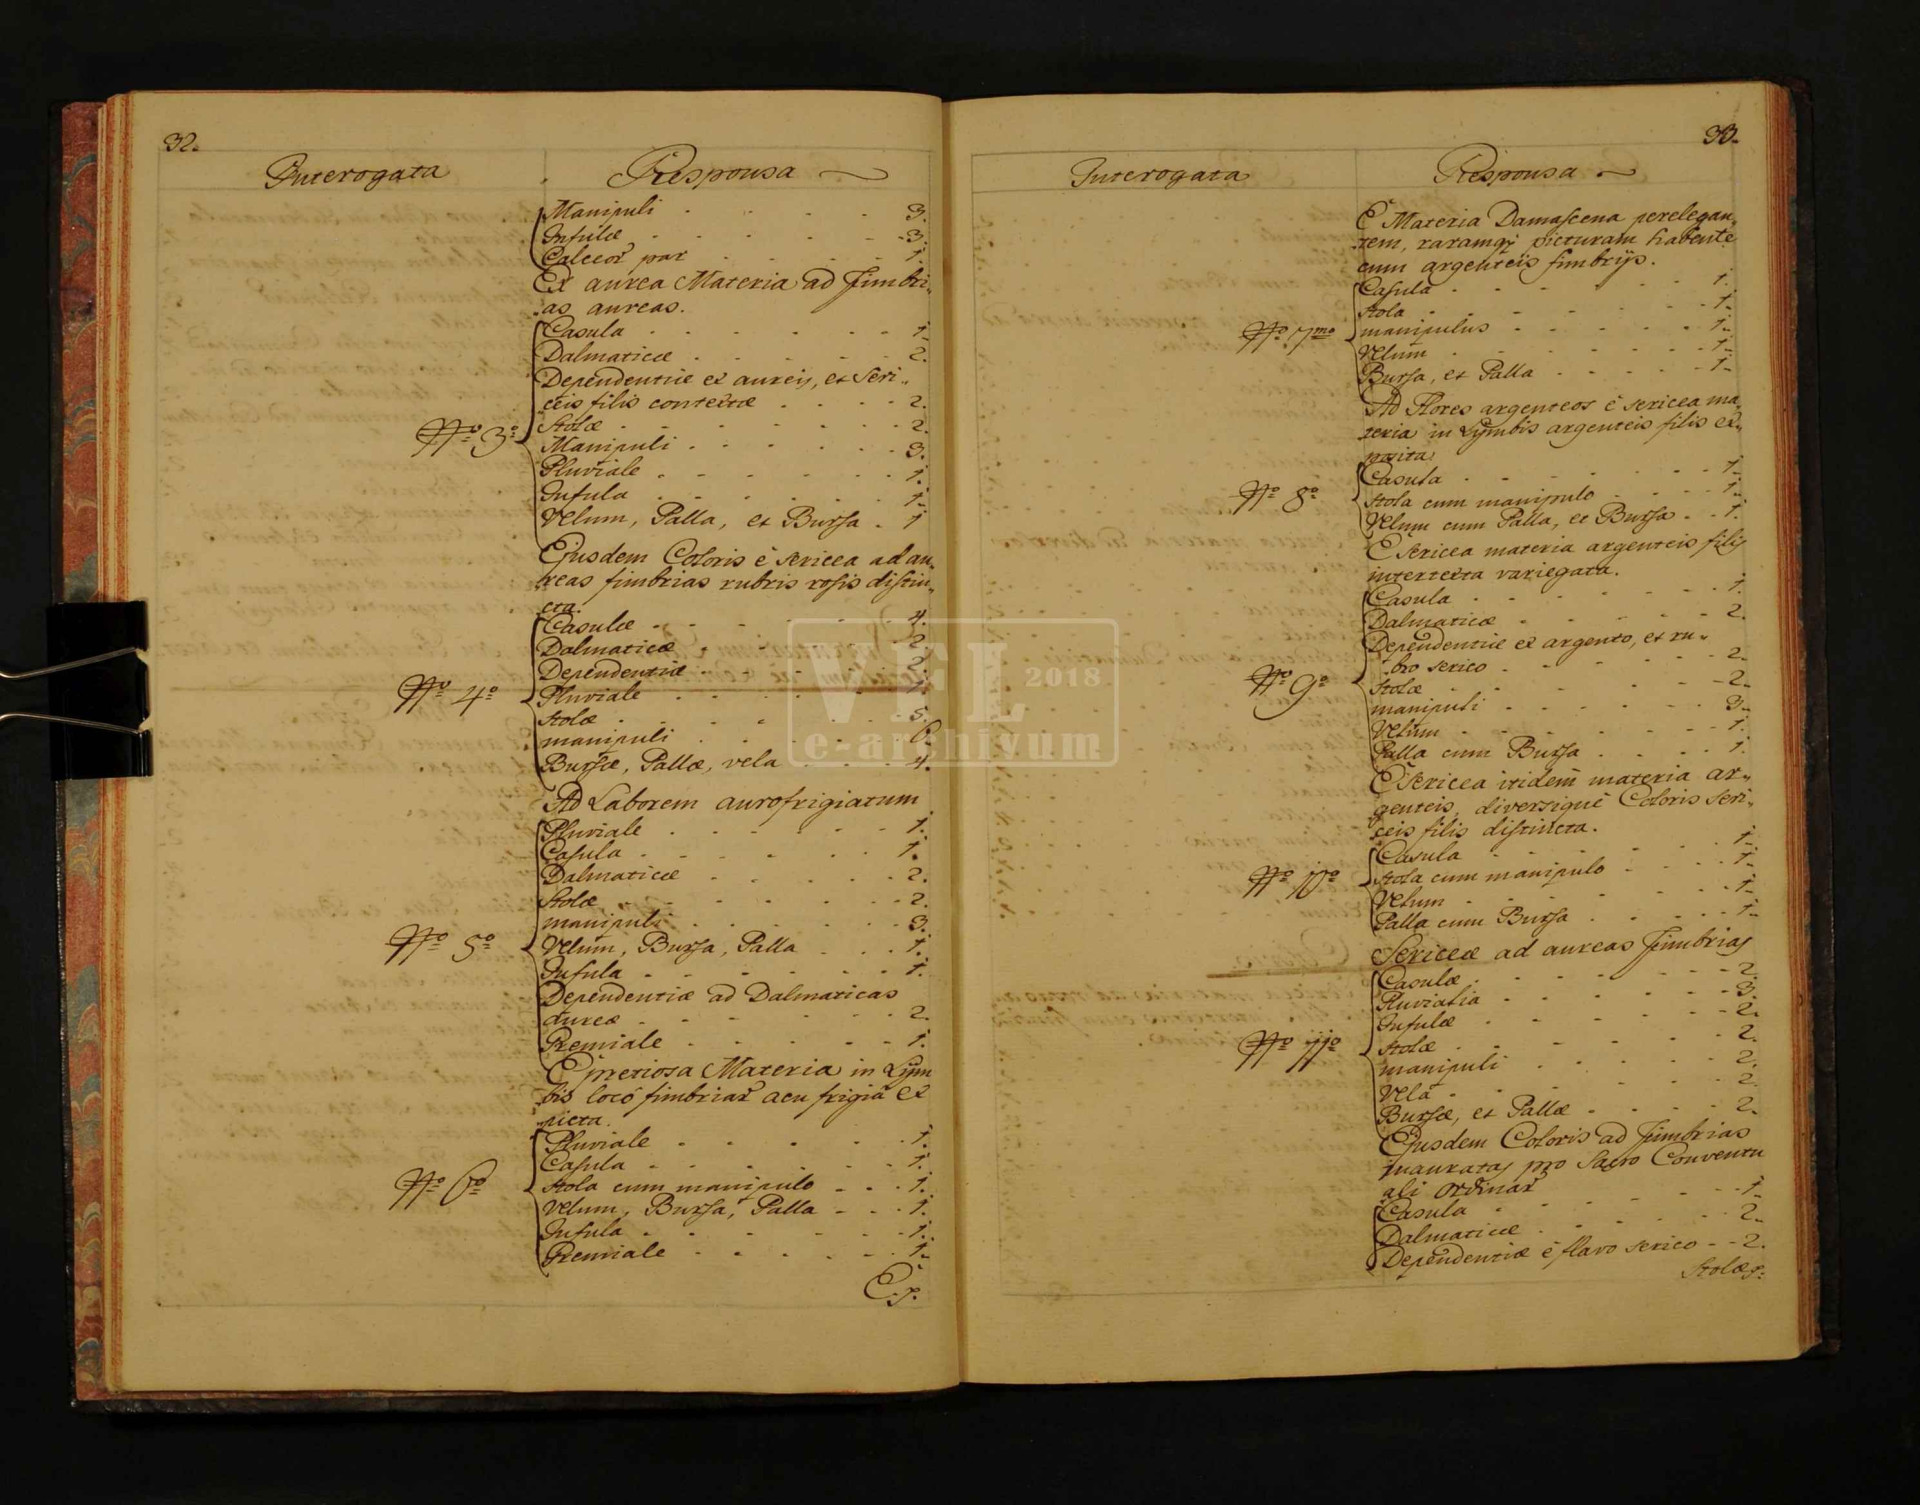 32.
Interogata Responsa
Manipuli 3.
Infulæ 3.
Calceor par 1.
Ex aurea Materia ad fimbri-
as aureas.
Casula 1.
Dalmaticæ 2.
Dependentiæ ex aureis, et Seri-
ceis filis contextæ 2.
Nro 3o
Stolæ 2.
Manipuli 3.
Pluviale 1.
Infula 1.
Velum, Palla, et Bursa 1
Ejusdem Coloris è sericea ad au-
reas fimbrias rubris rosis distin-
cta.
Casulæ 4.
Dalmaticæ 2.
Dependentiæ 2.
Nro 4o
Pluviale 1.
Stolæ 5.
manipuli 6.
Bursæ, Pallæ, vela 4.
Ad Laborem aurofrigiatum
Pluviale 1.
Casula 1.
Dalmaticæ 2.
Stolæ 2.
manipuli 3.
Nro 5o
Velum, Bursa, Palla 1.
Infula 1.
Dependentiæ ad Dalmaticas
aureæ 2.
Premiale 1.
E pretiosa Materia in Lym
bis locó fimbriar acu frigia ex
picta.
Pluviale 1.
Casula 1.
Nro 6o
Stola cum manipulo 1.
Velum, Bursa, Palla 1.
Infula 1.
Premiale 1.
33.
Interogata Responsa
E Materia Damascena perelegan-
tem, raramq picturam habente
cum argenteis fimbrijs.
Casula 1.
Stola 1.
Nro 7mo
manipulus 1.
Velum 1.
Bursa, et Palla 1.
Ad Flores argenteos è sericea ma-
teria in Lymbis argenteis filis ex-
posita
Casula 1.
Nro 8o
Stola cum manipulo 1.
Velum cum Palla, et Bursa 1.
E Sericea materia argenteis filis
intertexta variegata.
Casula 1.
Dalmaticæ 2.
Dependentiæ ex argento, et ru-
bro serico 2.
Nro 9o
Stolæ 2.
manipuli 3.
Velum 1.
Palla cum Bursa 1.
E Sericea itidem materia ar-
genteis, diversiquè Coloris Seri-
ceis filis distincta.
Casula 1.
Nro 10o
Stola cum manipulo 1.
Velum 1.
Palla cum Bursa 1.
Sericeæ ad aureas fimbrias
Casulæ 2.
Pluvialia 3.
Infulæ 2.
Nro 11o
Stolæ 2.
manipuli 2.
Vela 2.
Bursæ, et Pallæ 2.
Ejusdem Coloris ad fimbrias
inauratas pro Sacro Conventu
ali ordinar
Casula 1.
Dalmaticæ 2.
Dependentiæ è flavo serico 2.
VFL 2018
e-archivum